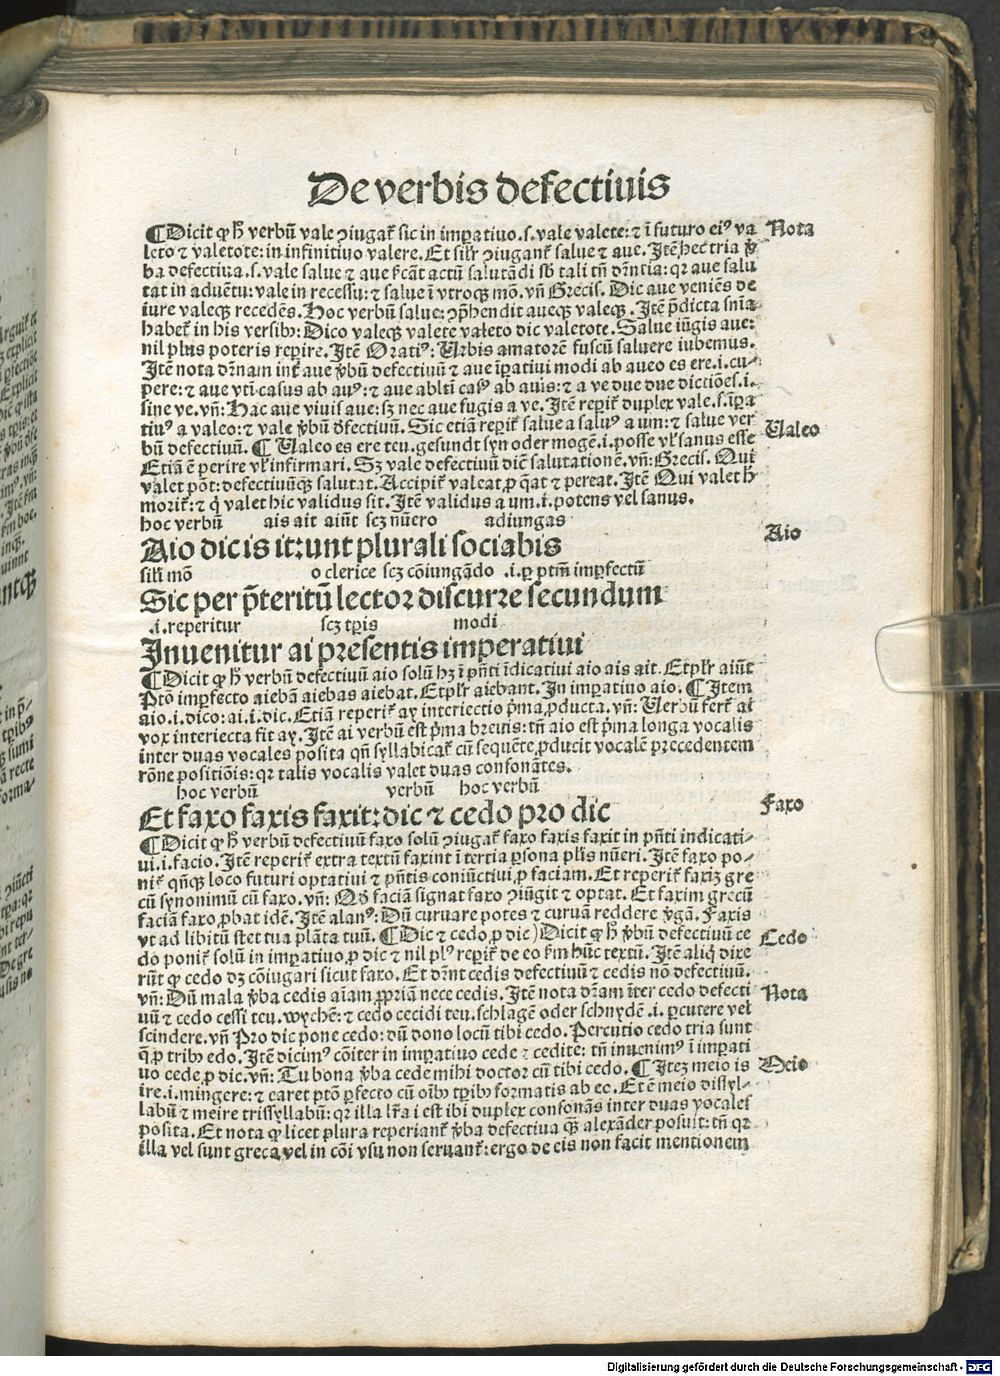 De verbis defectiuis
¶Dicit ꝙ h̄ verbū vale ꝯiugat᷑ sic in imꝑatiuo.s.vale valete: ⁊ ī futuro eiꝰ va
leto ⁊ valetote: in infinitiuo valere. Et silr̄ ꝯiugant᷑ salue ⁊ aue. Itē hec tria v̓
ba defectiua.s.vale salue ⁊ aue s̄cāt actū salutādi sb̄ tali tn̄ dr̄ntia: qꝛ aue salu
tat in aduētu: vale in recessu: ⁊ salue ī vtroqꝫ mō. vn̄ Grecis. Dic aue veniēs de
iure valeqꝫ recedēs. Hoc verbū salue: ꝯp̄hendit aueqꝫ valeqꝫ. Itē p̄dicta sn̄ia
habet᷑ in his versibꝰ: Dico valeqꝫ valete valeto dic valetote. Salue iūgis aue:
nil plus poteris reꝑire. Itē Oratiꝰ: Urbis amatorē fuscū saluere iubemus.
Itē nota dr̄nam int᷑ aue v̓bū defectiuū ⁊ aue īꝑatiui modi ab aueo es ere.i.cu-
pere: ⁊ aue vti casus ab auꝰ: ⁊ aue ablti casꝰ ab auis: ⁊ a ve due due dictiōes.i.
sine ve. vn̄: Hac aue viuis aue: sꝫ nec aue fugis a ve. Itē reꝑit᷑ duplex vale.s.īꝑa
tiuꝰ a valeo: ⁊ vale v̓bū defectiuū. Sic etiā reꝑit᷑ salue a saluꝰ a um: ⁊ salue ver
bū defectiuū. ¶ Valeo es ere teu. gesundt syn oder mogē.i. posse vl᷑ sanus esse
Etiā ē perire vl᷑ infirmari. Sꝫ vale defectiuū dicit̄ salutationē. vn̄: Grecis. Qui
valet pōt: defectiuūqꝫ salutat. Accipit᷑ valeat ꝓ q̄at ⁊ pereat. Itē Qui valet h̄
morit᷑: ⁊ q̇ valet hic validus sit. Itē validus a um.i. potens vel sanus.
hoc verbū ais ait aiūt scꝫ nūero adiungas
Aio dic is it: unt plurali sociabis
sili mō o clerice scꝫ cōiungādo .i. ꝑ ptm̄ imꝑfectū
Sic per p̄teritū lector discurre secundum
.i. reperitur scꝫ tꝑis modi
Inuenitur ai presentis imperatiui
¶Dicit ꝙ h̄ verbū defectiuū aio solū hꝫ ī pn̄ti īdicatiui aio ais ait. Et pl̄r aiūt
Ptō imꝑfecto aiebā aiebas aiebat. Et pl̄r aiebant. In imꝑatiuo aio. ¶ Item
aio.i.dico: ai.i.dic. Etiā reperit᷑ ay interiectio p̄ma ꝓducta. vn̄: Verbū fert᷑ ai
vox interiecta fit ay. Itē ai verbū est p̄ma breuis: tn̄ aio est p̄ma longa vocalis
inter duas vocales posita qn̄ syllabicat᷑ cū sequēte ꝓducit vocalē precedentem
rōne positiōis: qꝛ talis vocalis valet duas consonātes.
hoc verbū verbū hoc verbū
Et faxo faxis faxit: dic ⁊ cedo pro dic
¶Dicit ꝙ h̄ verbū defectiuū faxo solū ꝯiugat᷑ faxo faxis faxit in pn̄ti indicati-
ui.i. facio. Itē reperit᷑ extra textū faxint ī tertia ꝑsona pl̄is nūeri. Itē faxo po-
nit᷑ qn̄qꝫ loco futuri optatiui ⁊ pn̄tis coniūctiui ꝓ faciam. Et reperit᷑ faxiꝫ gre
cū synonimū cū faxo. vn̄: Qd̄ faciā signat faxo ꝯiūgit ⁊ optat. Et faxim grecū
faciā faxo ꝓbat idē. Itē alanꝰ: Dū curuare potes ⁊ curuā reddere v̓gā. Faxis
vt ad libitū stet tua plāta tuū. ¶Dic ⁊ cedo ꝓ dic) Dicit ꝙ h̄ v̓bū defectiuū ce
do ponit᷑ solū in imꝑatiuo ꝓ dic ⁊ nil plꝰ reꝑit᷑ de eo s̄m hūc textū. Itē aliq̇ dixe
rūt ꝙ cedo dꝫ cōiugari sicut faxo. Et dr̄nt cedis defectiuū ⁊ cedis nō defectiuū.
vn̄: Dū mala v̓ba cedis aīam ꝓpriā nece cedis. Itē nota dr̄am īter cedo defecti
uū ⁊ cedo cessi teu. wychē: ⁊ cedo cecidi teu. schlagē oder schnydē .i. ꝑcutere vel
scindere. vn̄ Pro dic pone cedo: dū dono locū tibi cedo. Percutio cedo tria sunt
q̄ ꝓ tribꝰ edo. Itē dicimꝰ cōiter in imꝑatiuo cede ⁊ cedite: tn̄ inuenimꝰ ī imꝑati
uo cede ꝓ dic. vn̄: Tu bona v̓ba cede mihi doctor cū tibi cedo. ¶ Iteꝫ meio is
ire.i. mingere: ⁊ caret ptō ꝑfecto cū oībꝰ tꝑibꝰ formatis ab ec. Et ē meio dissyl-
labū ⁊ meire trissyllabū: qꝛ illa lr̄a i est ibi duplex consonās inter duas vocales
posita. Et nota ꝙ licet plura reperiant᷑ v̓ba defectiua q̄ꝫ alexāder posuit: tn̄ qꝛ
illa vel sunt greca vel in cōi vsu non seruant᷑: ergo de eis non facit mentionem
Nota
Valeo
Aio
Faxo
Cedo
Nota
Meio
Digitalisierung gefördert durch die Deutsche Forschungsgemeinschaft - DFG